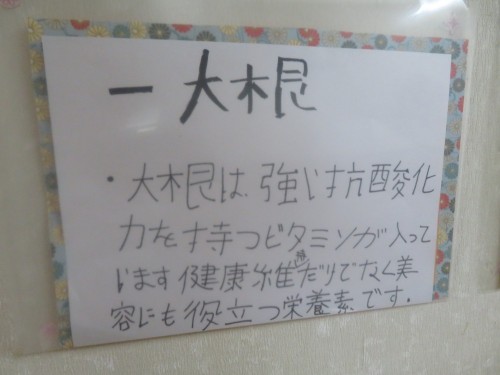 一大根
・大根は、強い抗酸化
力を持つビタミンが入って
います健康維持だけでなく美
容にも役立つ栄養素です.